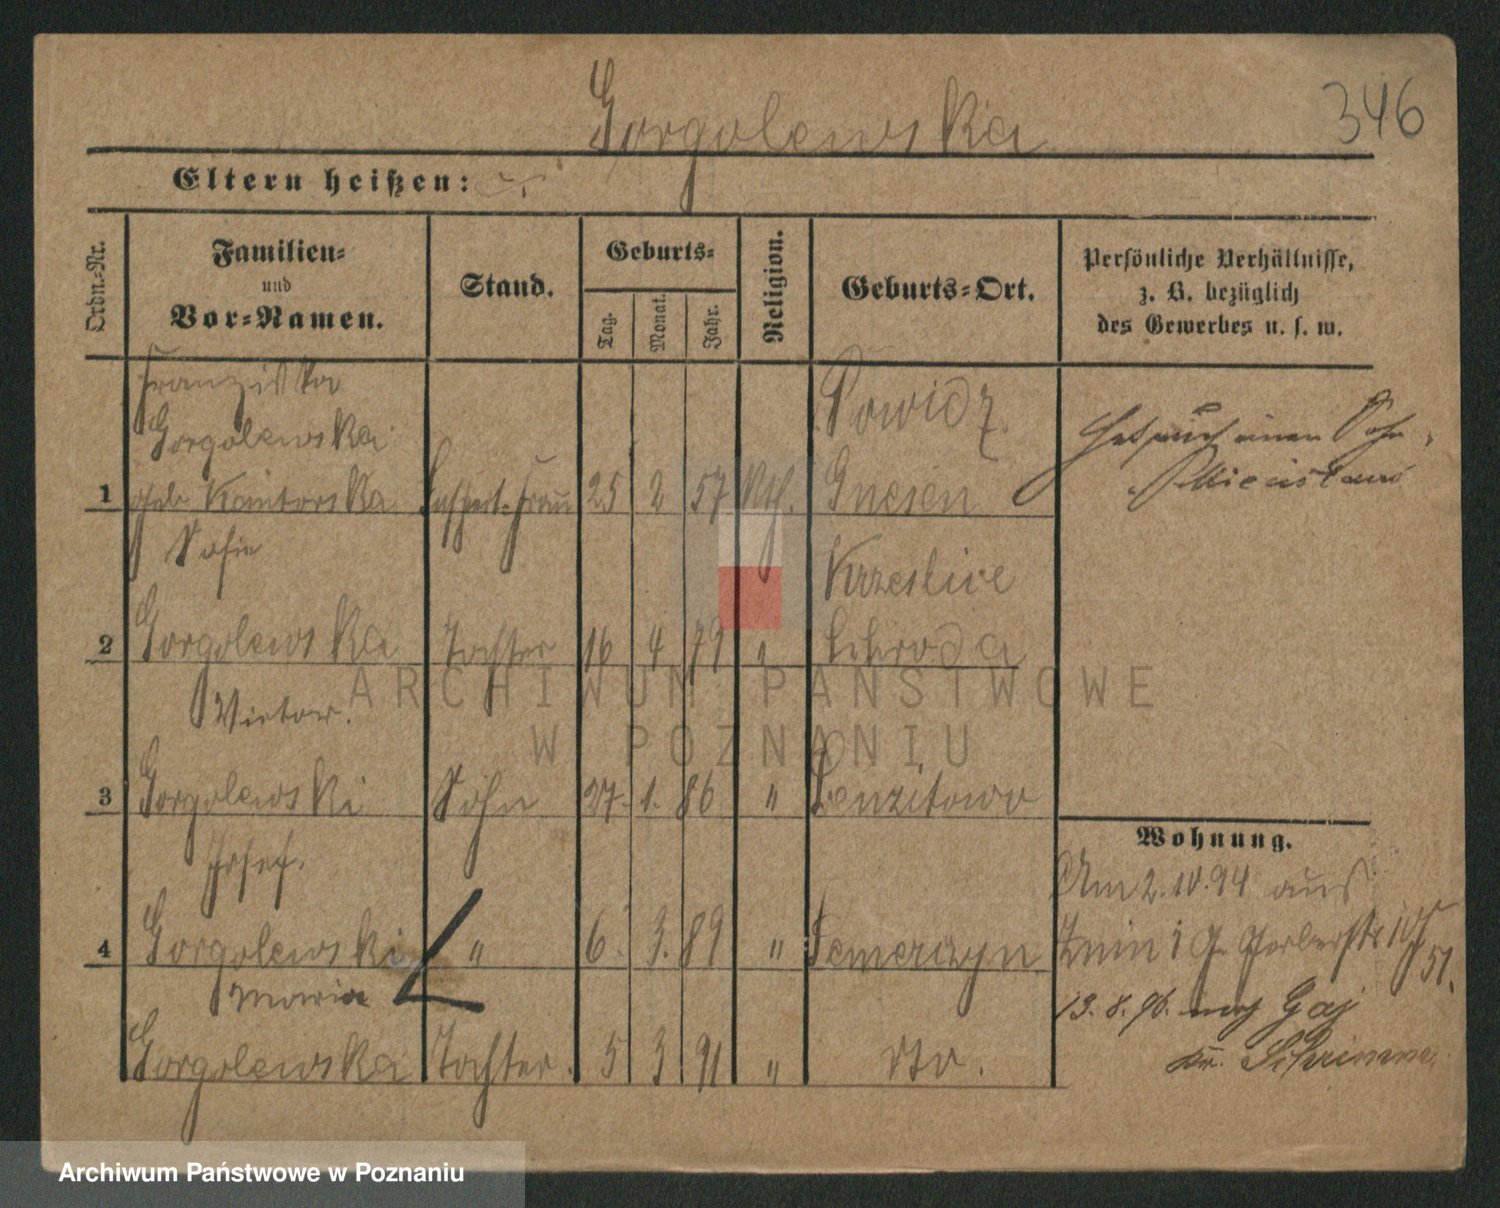 Gorgolewska
346
Eltern heißen:
Ordn.-Nr.
Familien-
und
Vor-Namen.
Stand.
Geburts-
Tag.
Monat.
Jahr.
Religion.
Geburts-Ort.
Persönliche Verhältnisse,
z. B. bezüglich
des Gewerbes u. s. w.
Franziska
Gorgolewska
1 geb Kantorska 25 2 57 Kth.
Powidz
Gnesen
Hat auch einen Sohn,
Miecislaus
Sofie
2 Gorgolewska Tochter 16 4 79 "
Krzeslice
Schroda
Victor.
3 Gorgolewski Sohn 27. 1. 86 "
Josef.
4 Gorgolewski " 6. 3. 89 " Semerzyn
Maria
Gorgolewska Tochter. 5 3 91 " dto.
Wohnung.
Am 2. IV. 94 aus
Znin i G. Gerberstr
51.
13. 8. 96. nach Gaj
Kr. Schrimm.
ARCHIWUM PAŃSTWOWE
W POZNANIU
Archiwum Państwowe w Poznaniu